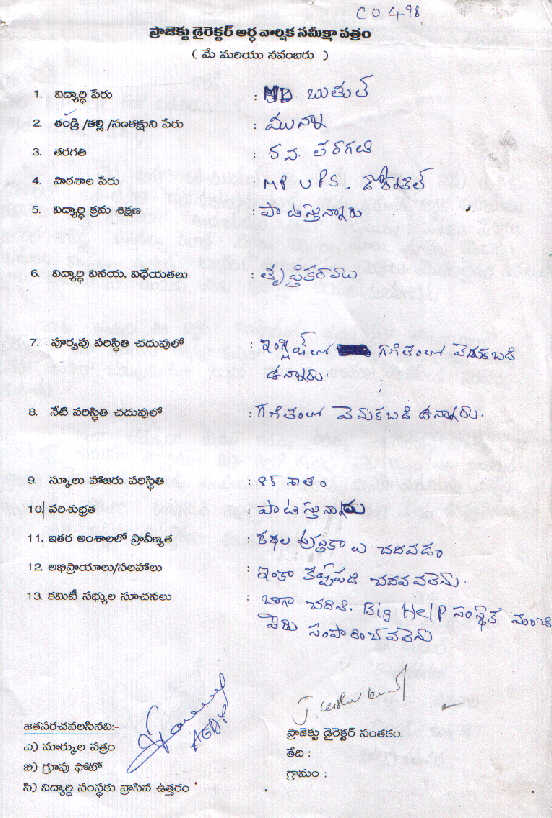 CO498
ప్రాజెక్టు డైరెక్టర్ అర్ధ వార్షిక సమీక్షా పత్రం
( మే మరియు నవంబరు )
1. విద్యార్థి పేరు : MD బుతుల్
2. తండ్రి /తల్లి /సంరక్షుని పేరు : మునాఫ్
3. తరగతి : 5వ. తరగతి
4. పాఠశాల పేరు : MP UPS.
5. విద్యార్థి క్రమ శిక్షణ : పాటిస్తున్నారు
6. విద్యార్థి వినయ, విధేయతలు : తృప్తికరము
7. పూర్వపు పరిస్థితి చదువులో : ఇంగ్లీష్‌లో గణితంలో వెనుకబడి
ఉన్నారు.
8. నేటి పరిస్థితి చదువులో : గణితంలో వెనుకబడి ఉన్నారు.
9. స్కూలు హాజరు పరిస్థితి : 95 శాతం
10. పరిశుభ్రత : పాటిస్తున్నారు
11. ఇతర అంశాలలో ప్రావీణ్యత : కథల పుస్తకాలు చదవడం
12. అభిప్రాయాలు/సలహాలు : ఇంకా కష్టపడి చదవవలెను.
13. కమిటీ సభ్యుల సూచనలు : బాగా చదివి. Big Help సంస్థకి మంచి
పేరు సంపాదించవలెను
జతపరచవలసినవి:-
ఎ) మార్కుల పత్రం
బి) గ్రూపు ఫోటో
సి) విద్యార్థి సంస్థకు వ్రాసిన ఉత్తరం
ప్రాజెక్టు డైరెక్టర్ సంతకం
తేది :
గ్రామం :